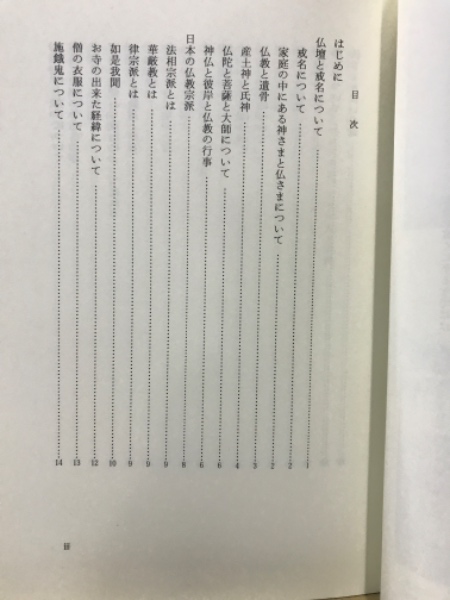 目次
はじめに
仏壇と戒名について……1
戒名について……2
家庭の中にある神さまと仏さまについて……2
仏教と遺骨……3
産土神と氏神……4
仏陀と菩薩と大師について……6
神仏と彼岸と仏教の行事……6
日本の仏教宗派……8
法相宗派とは……9
華厳教とは……9
律宗派とは……9
如是我聞……10
お寺の出来た経緯について……12
僧の衣服について……13
施餓鬼について……14
iii